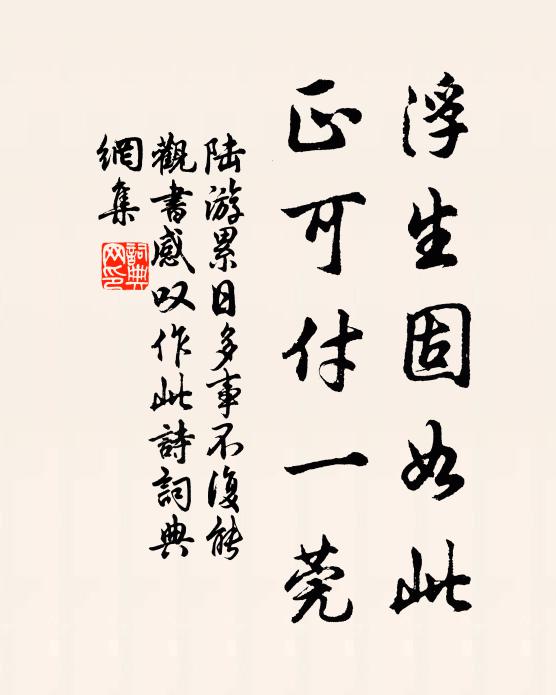 浮生固如此
正可付一莞
陆游累日多事不復能
觀書感叹作此詩詞典
網集
詞典
网印